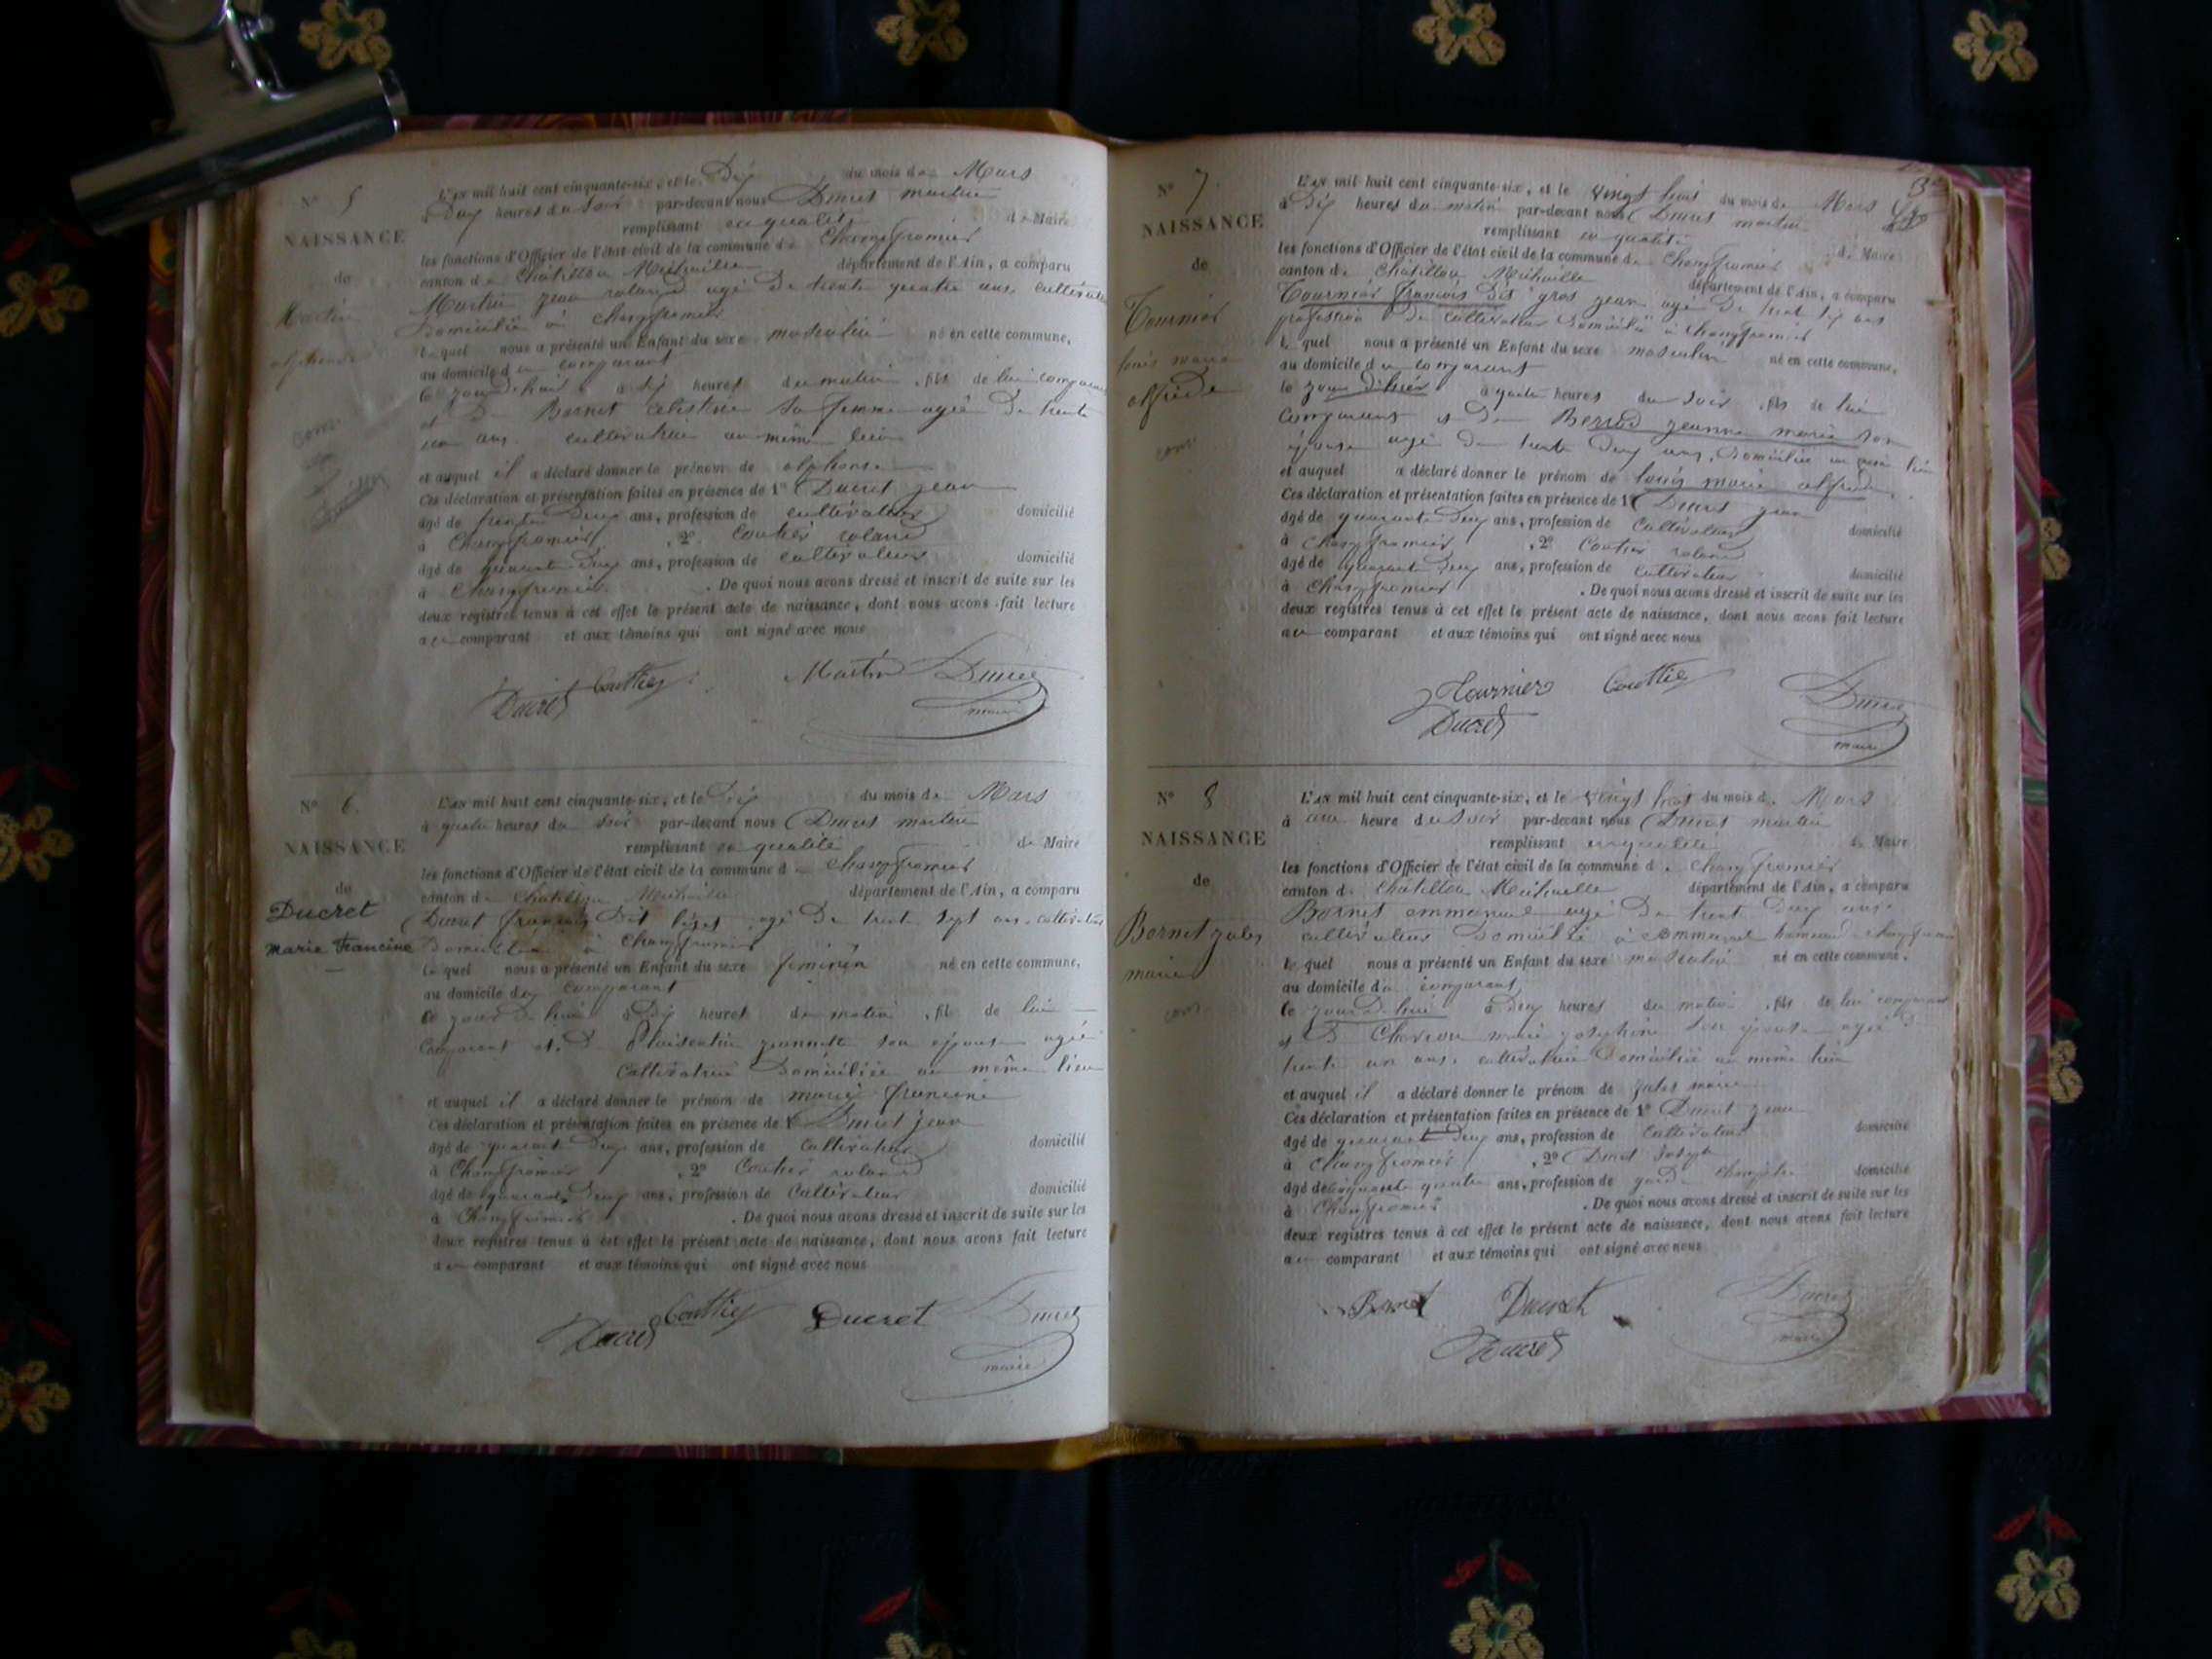 N° 5
NAISSANCE
de
Martin
alphonse
L'an mil huit cent cinquante-six, et le Dix du mois de Mars
à Deux heures du Soir par-devant nous Ducret martin
remplissant en qualité de Maire
les fonctions d'Officier de l'état civil de la commune de Champfromier
canton de Châtillon Michaille département de l'Ain, a comparu
Martin jean roland agé de trente quatre ans cultivateur
Domicilié à champfromier
lequel nous a présenté un Enfant du sexe masculin né en cette commune,
au domicile du comparant
ce jourd'hui à dix heures du matin, fils de lui comparant
et de Bornet célestine sa femme agée de trente
un ans cultivatrice au même lieu
et auquel il a déclaré donner le prénom de alphonse
Ces déclaration et présentation faites en présence de 1° Ducret jean
âgé de Deux ans, profession de cultivateur domicilié
à Champfromier, 2° Coutier roland
âgé de quarante Deux ans, profession de cultivateur domicilié
à Champfromier. De quoi nous avons dressé et inscrit de suite sur les
deux registres tenus à cet effet le présent acte de naissance, dont nous avons fait lecture
au comparant et aux témoins qui ont signé avec nous
Ducret Couttier Martin Ducret
maire
N° 6.
NAISSANCE
de
Ducret
marie Francine
L'an mil huit cent cinquante-six, et le Dix du mois de Mars
à quatre heures du Soir par-devant nous Ducret martin
remplissant en qualité de Maire
les fonctions d'Officier de l'état civil de la commune de champfromier
canton de Châtillon Michaille département de l'Ain, a comparu
Ducret françois Dit agé De trente sept ans cultivateur
Domicilié à Champfromier
lequel nous a présenté un Enfant du sexe féminin né en cette commune,
au domicile du comparant
ce jourd'hui à Dix heures du matin, fille de lui
comparant et de jeannette son épouse agée
cultivatrice Domiciliée au même lieu
et auquel il a déclaré donner le prénom de marie francine
Ces déclaration et présentation faites en présence de 1° Ducret jean
âgé de quarante Deux ans, profession de Cultivateur domicilié
à Champfromier, 2° Coutier roland
âgé de quarante Deux ans, profession de Cultivateur domicilié
à Champfromier. De quoi nous avons dressé et inscrit de suite sur les
deux registres tenus à cet effet le présent acte de naissance, dont nous avons fait lecture
au comparant et aux témoins qui ont signé avec nous
Ducret Couttier Ducret Ducret
maire
N° 7
NAISSANCE
de
Tournier
louis marie
alfrede
L'an mil huit cent cinquante-six, et le vingt trois du mois de Mars
à Dix heures du matin par-devant nous Ducret martin
remplissant en qualité de Maire
les fonctions d'Officier de l'état civil de la commune de Champfromier
canton de Châtillon Michaille département de l'Ain, a comparu
Tournier françois Dit gros jean agé De trente six ans
profession De cultivateur Domicilié à champfromier
lequel nous a présenté un Enfant du sexe masculin né en cette commune,
au domicile du comparant
le jour d'hier à quatre heures du Soir, fils de lui
comparant et De Berrod jeanne marie son
épouse agée De trente Deux ans, Domiciliée au même lieu
et auquel a déclaré donner le prénom de louis marie alfrede
Ces déclaration et présentation faites en présence de 1° Ducret jean
âgé de quarante Deux ans, profession de Cultivateur domicilié
à Champfromier, 2° Coutier roland
âgé de quarante Deux ans, profession de cultivateur domicilié
à Champfromier. De quoi nous avons dressé et inscrit de suite sur les
deux registres tenus à cet effet le présent acte de naissance, dont nous avons fait lecture
au comparant et aux témoins qui ont signé avec nous
Tournier Couttier Ducret
Ducret maire
N° 8
NAISSANCE
de
Bornet jules
marie
L'an mil huit cent cinquante-six, et le vingt trois du mois de Mars
à une heure du Soir par-devant nous Ducret martin
remplissant en qualité de Maire
les fonctions d'Officier de l'état civil de la commune de Champfromier
canton de Châtillon Michaille département de l'Ain, a comparu
Bornet emmanuel agé De trente Deux ans
cultivateur Domicilié à hameau champfromier
lequel nous a présenté un Enfant du sexe masculin né en cette commune,
au domicile du comparant
ce jourd'hui à Deux heures du matin, fils de lui comparant
et De marie joséphine son épouse agée De
trente un ans, cultivatrice Domiciliée au même lieu
et auquel il a déclaré donner le prénom de jules marie
Ces déclaration et présentation faites en présence de 1° Ducret jean
âgé de quarante Deux ans, profession de Cultivateur domicilié
à Champfromier, 2° Ducret Joseph
âgé de cinquante quatre ans, profession de garde champêtre domicilié
à Champfromier. De quoi nous avons dressé et inscrit de suite sur les
deux registres tenus à cet effet le présent acte de naissance, dont nous avons fait lecture
au comparant et aux témoins qui ont signé avec nous
Bornet Ducret Ducret
Ducret maire